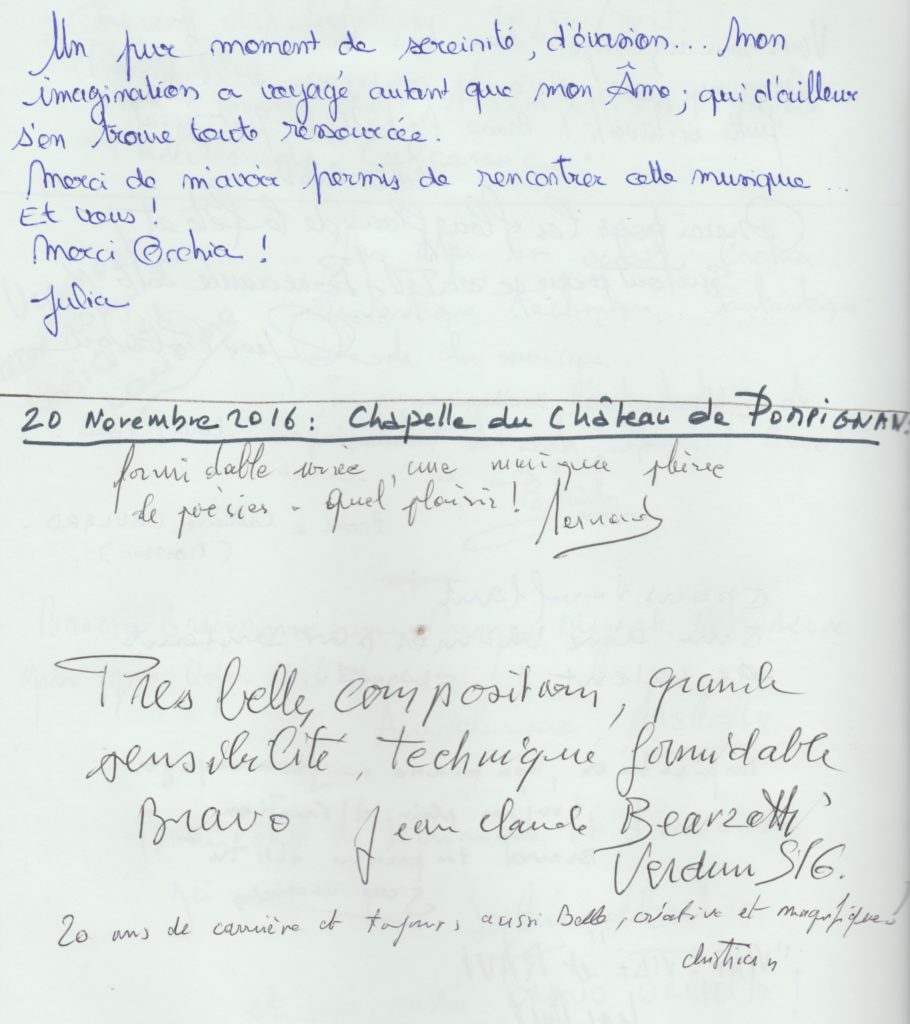 Un pur moment de sereinité, d'évasion... Mon
imagination a voyagé autant que mon Âme ; qui d'ailleur
s'en trouve toute ressourcée.
Merci de m'avoir permis de rencontrer cette musique ...
Et vous !
Merci Orchia !
Julia
20 Novembre 2016 : Chapelle du Château de POMPIGNAN.
formidable soirée, une musique pleine
de poèsies - quel plaisir !
Très belles composition, grande
sensibilité, technique formidable
Bravo Jean claude Bearzatti
Verdun S/G.
20 ans de carrière et toujours aussi Belle, créative et magnifique
christian